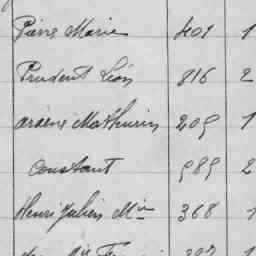 Pierre Marie 401 1
Prudent Léon 816 2
arsène Mathurin 209 1
Constant 989 2
Henri Julien M in 368 1